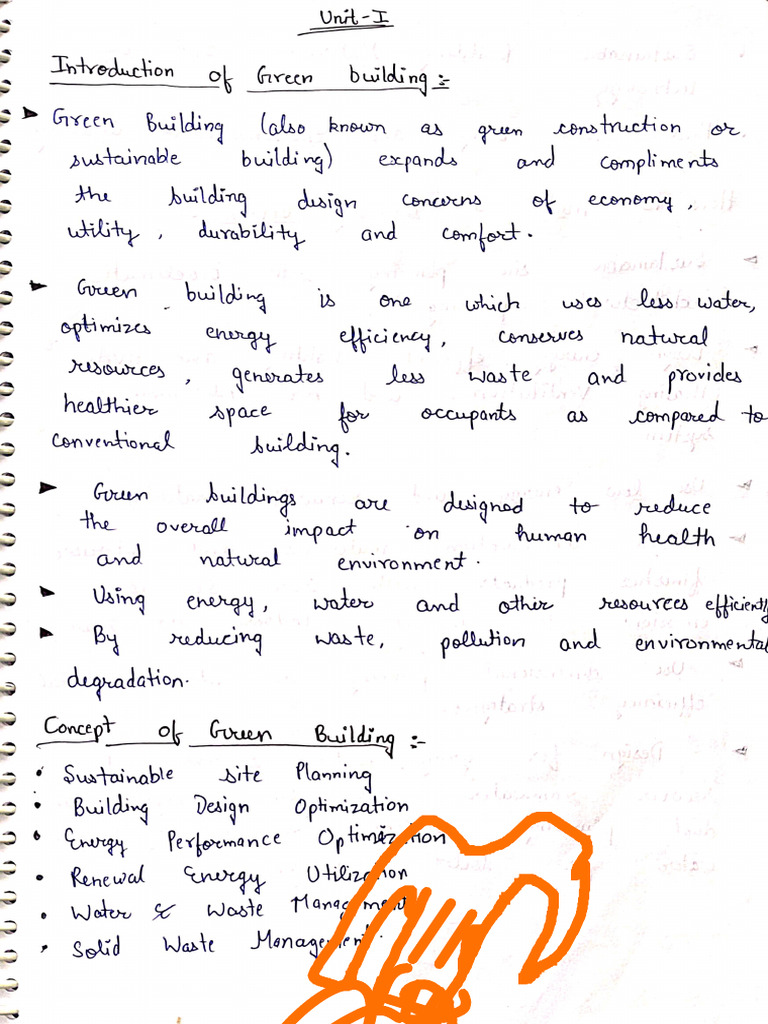 Unit-I
Introduction of Green building:-
Green Building (also known as green construction or
sustainable building) expands and compliments
the building design concerns of economy,
utility, durability and comfort.
Green building is one which uses less water,
optimizes energy efficiency, conserves natural
resources, generates less waste and provides
healthier space for occupants as compared to
conventional building.
Green buildings are designed to reduce
the overall impact on human health
and natural environment.
Using energy, water and other resources efficiently
By reducing waste, pollution and environmental
degradation.
Concept of Green Building:-
• Sustainable site Planning
• Building Design Optimization
• Energy Performance Optimization
• Renewal Energy Utilization
• Water & Waste Management
• Solid Waste Management.